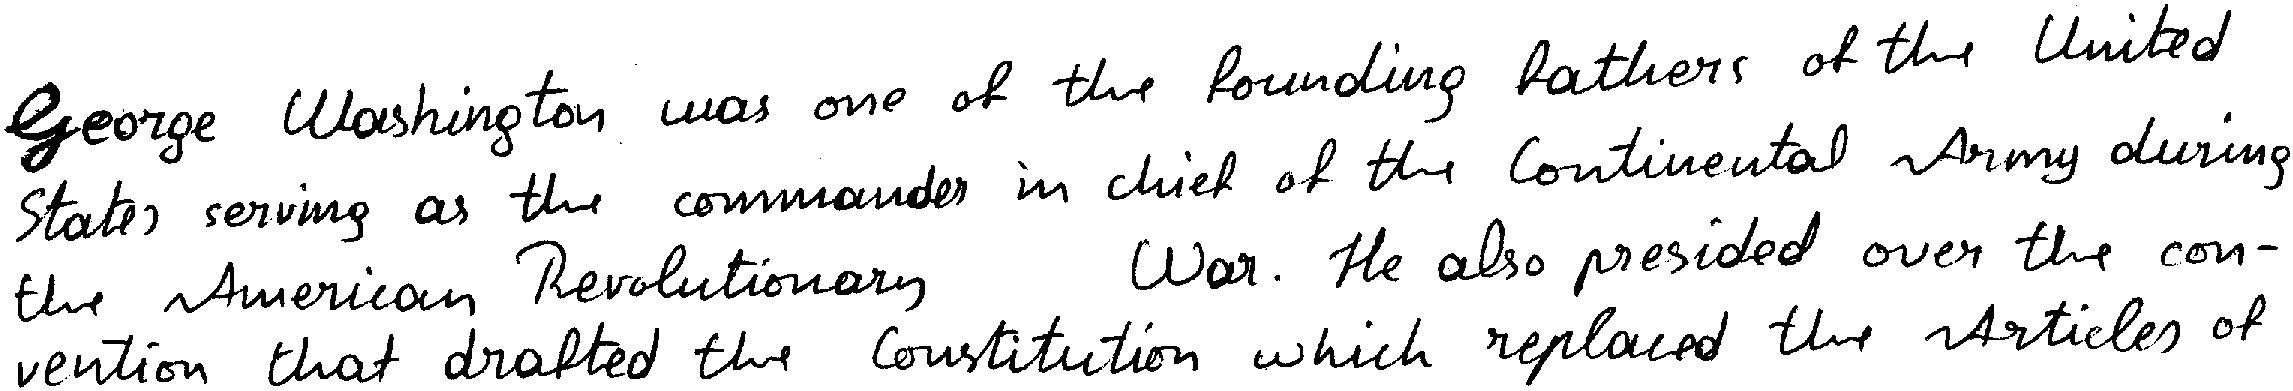 George Washington was one of the founding fathers of the United
States serving as the commander in chief of the Continental Army during
the American Revolutionary War. He also presided over the con-
vention that drafted the Constitution which replaced the Articles of